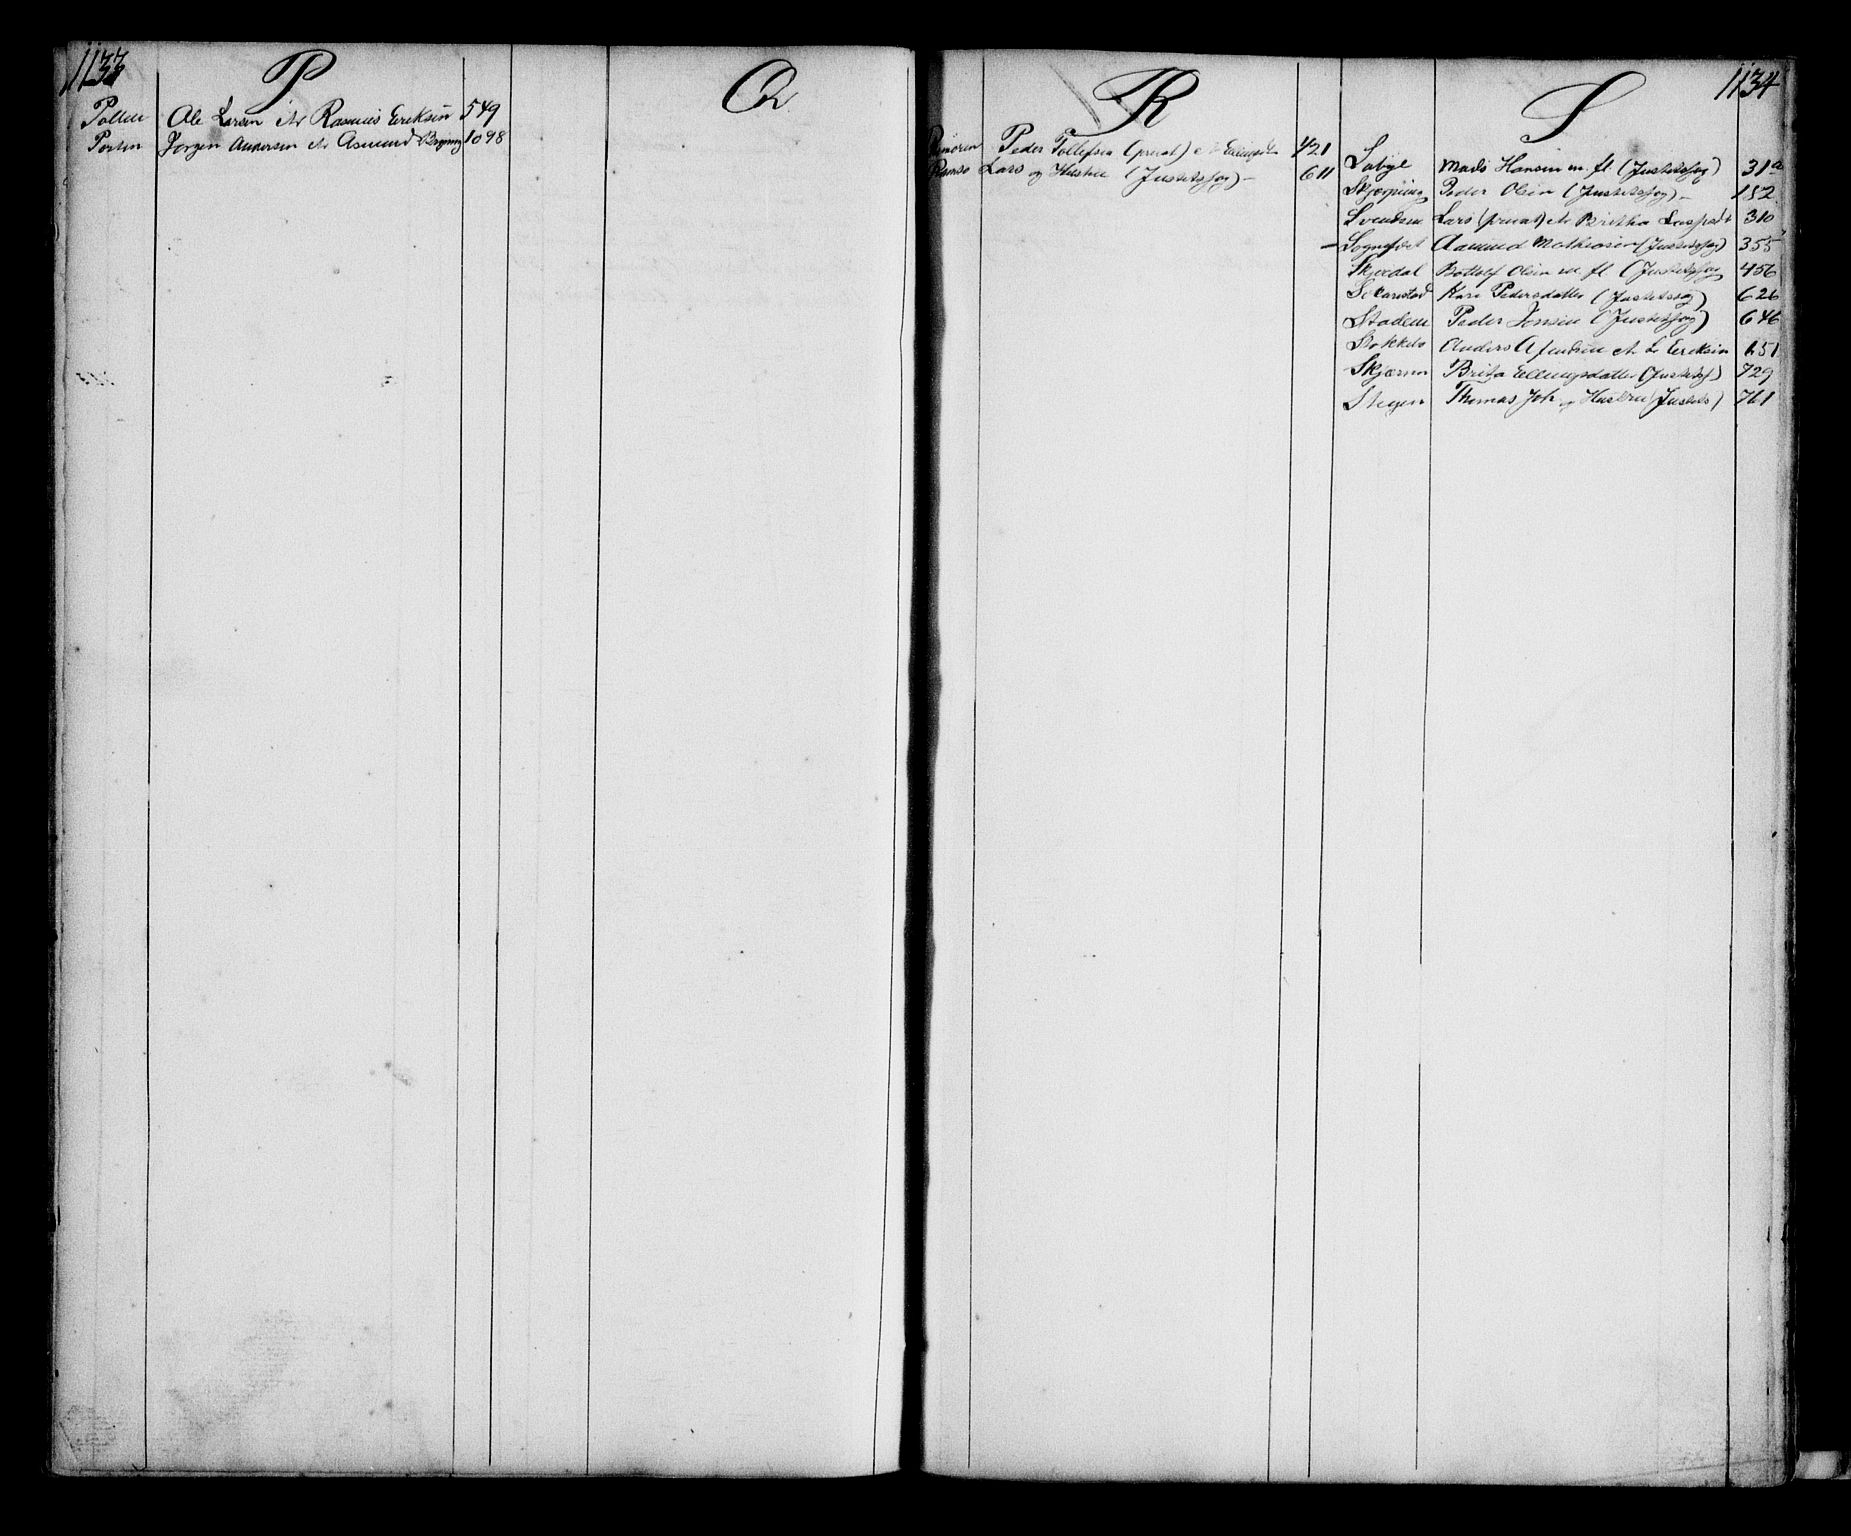 1133
P
Pollen Ole Larsen ctr Rasmus Eeriksen 549
Porten Jørgen Andersen ctr Asmund 1098
Q
R
1134
Peder Tollefsen (privat) 421
Ramsø Lars og Hustru (Justitssag) – 611
S
Mads Hansen m. fl. (Justitssag) 31a
Skjerping Peder Olsen (Justitssag) – 182
Svendsen Lars (privat) ctr Britha 310
– Sognefæst Aamund Mathiasen (Justitssag) 355
Skjerdal Botolf Olsen m fl. (Justitssag 456
Kari Pedersdatter (Justitssag) 626
Stadem Peder Jensen (Justitssag) 646
Anders ctr L Eeriksen 651
Skjærven Brita Ellingsdatter (Justitss) 729
Stegen Thomas Joh og Hustru (Justits) 761